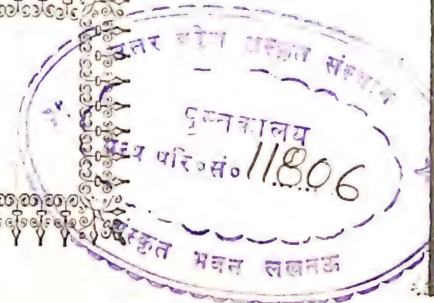 उत्तर प्रदेश संस्कृत संस्थान
पुस्तकालय
परि०सं० 11806
संस्कृत भवन लखनऊ